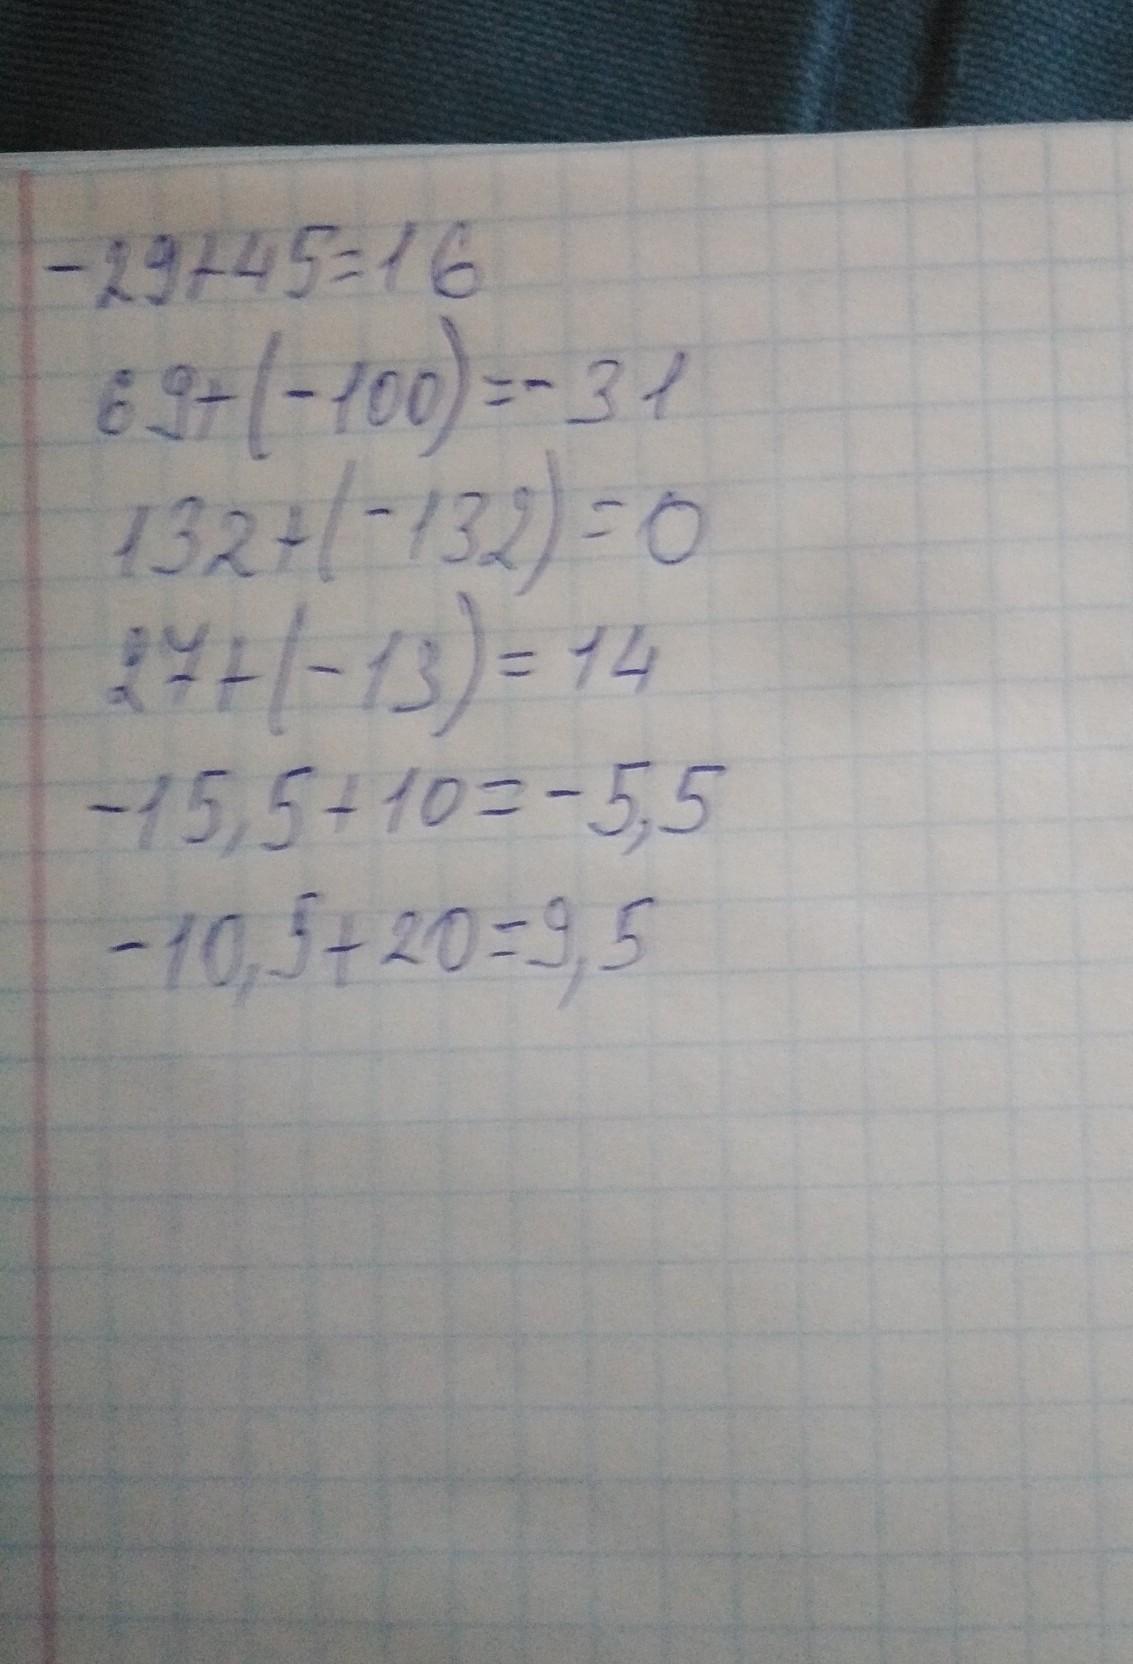 -29+45=16
69+(-100)=-31
132+(-132)=0
27+(-13)=14
-15,5+10=-5,5
-10,5+20=9,5